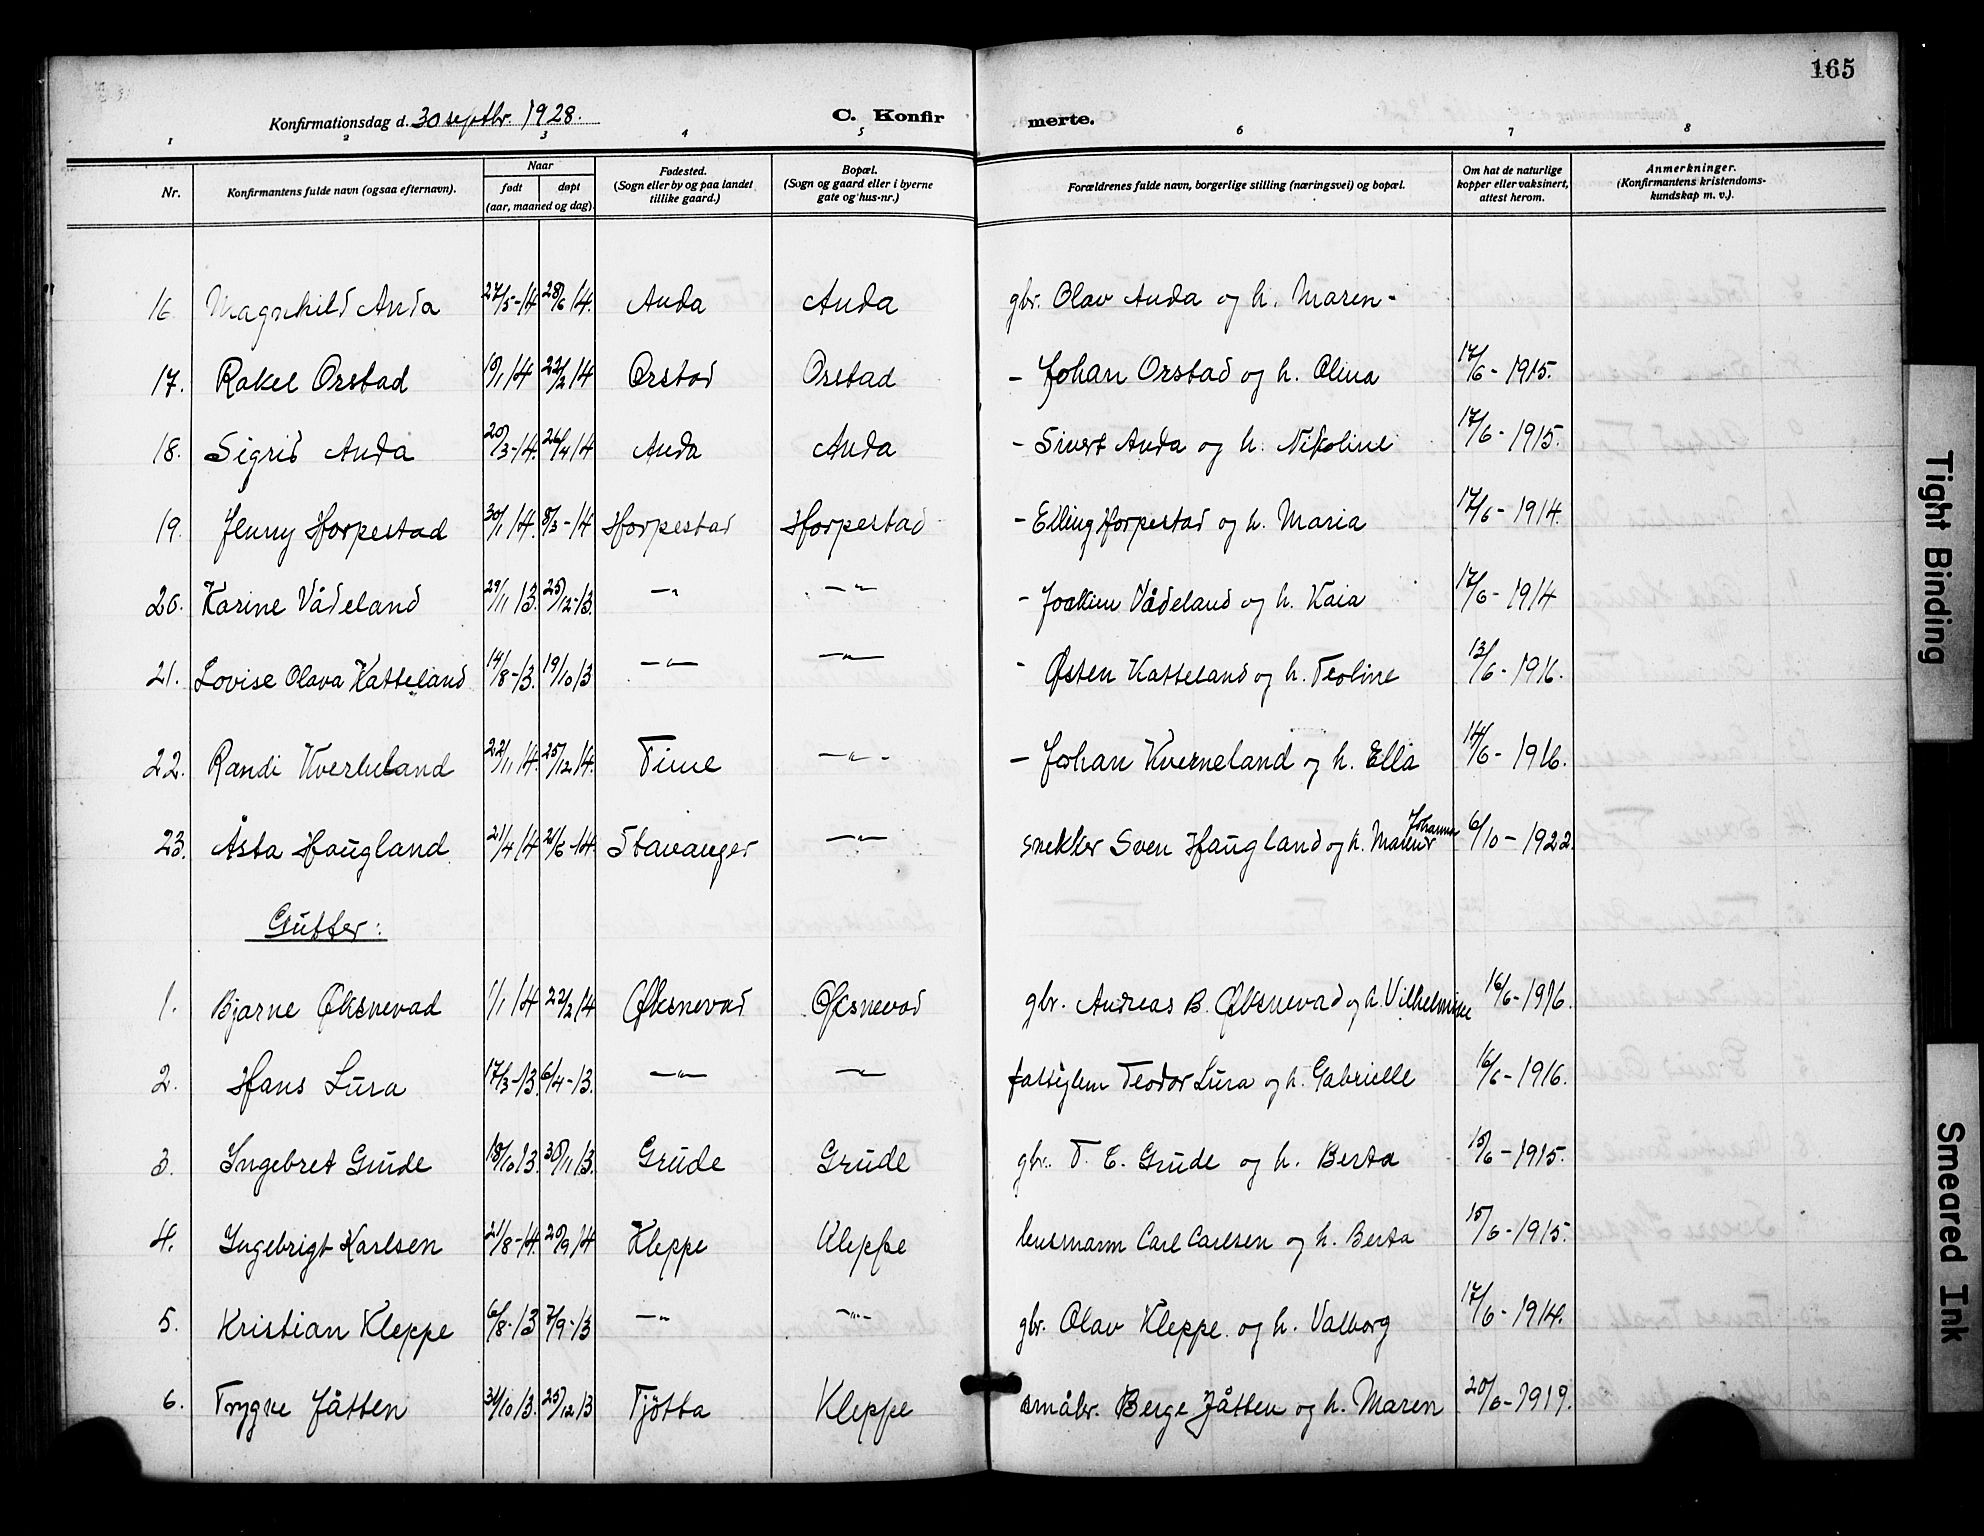 165
Konfirmationsdag d. 30 septbr. 1928. C. Konfir merte.
1 2 3 4 5 6 7 8
Nr. Konfirmantens fulde navn (ogsaa efternavn). Naar født døpt (aar, maaned og dag). Fødested. (Sogn eller by og paa landet tillike gaard.) Bopæl. (Sogn og gaard eller i byerne gate og hus-nr.) Forældrenes fulde navn, borgerlige stilling (næringsvei) og bopæl. Om hat de naturlige kopper eller vaksinert, attest herom. Anmerkninger. (Konfirmantens kristendoms-kundskap m. v.).
16. Magnhild Anda 27/5-14 28/6 14. Anda Anda gbr. Olav Anda og h. Maren -
17. Rakel Orstad 19/1 14 22/2 14 Orstad Orstad - Johan Orstad og h. Olina 17/6 - 1915.
18. Sigrid Anda 20/3-14. 26/4 14 Anda Anda - Sivert Anda og h. Nikoline 17/6 - 1915.
19. Jenny Horpestad 30/1 14. 8/3-14 Horpestad Horpestad - Elling Horpestad og h. Maria 17/6 - 1914.
20. Karine Vådeland 29/11 13. 25/12-13. -"- -"- - Joakim Vådeland og h. Kaia 17/6 - 1914
21. Lovise Olava Katteland 14/8-13. 19/10 13 -"- -"- - Østen Katteland og h. Teoline 13/6 - 1916.
22. Randi Kverneland 22/11 14. 25/12 14. Time -"- - Johan Kverneland og h. Ella 14/6 - 1916.
23. Åsta Haugland 21/4 14 21/6-14. Stavanger -"- snekker Sven Haugland og h. Johanna 6/10 - 1922.
Gutter:
1. Bjarne Øksnevad 1/1 14 22/2 14 Øksnevad Øksnevad gbr. Andreas B. Øksnevad og h. Vilhelmine 16/6 - 1916.
2. Hans Lura 17/3-13. 6/4-13. -"- -"- fattiglem Teodor Lura og h. Gabrielle 16/6 - 1916.
3. Ingebret Grude 18/10 13. 30/11 13. Grude Grude gbr. T. E. Grude og h. Berta 15/6 - 1915.
4. Ingebrigt Karlsen 21/8-14. 20/9 14 Kleppe Kleppe husmann Carl Carlsen og h. Berta 15/6 - 1915.
5. Kristian Kleppe 6/8-13 7/9-13 -"- -"- gbr. Olav Kleppe og h. Valborg 17/6 - 1914.
6. Trygve Jåtten 31/10 13. 25/12 13 Tjøtta Kleppe småbr. Berge Jåtten og h. Maren 20/6-1919.
Tight Binding
Smeared Ink